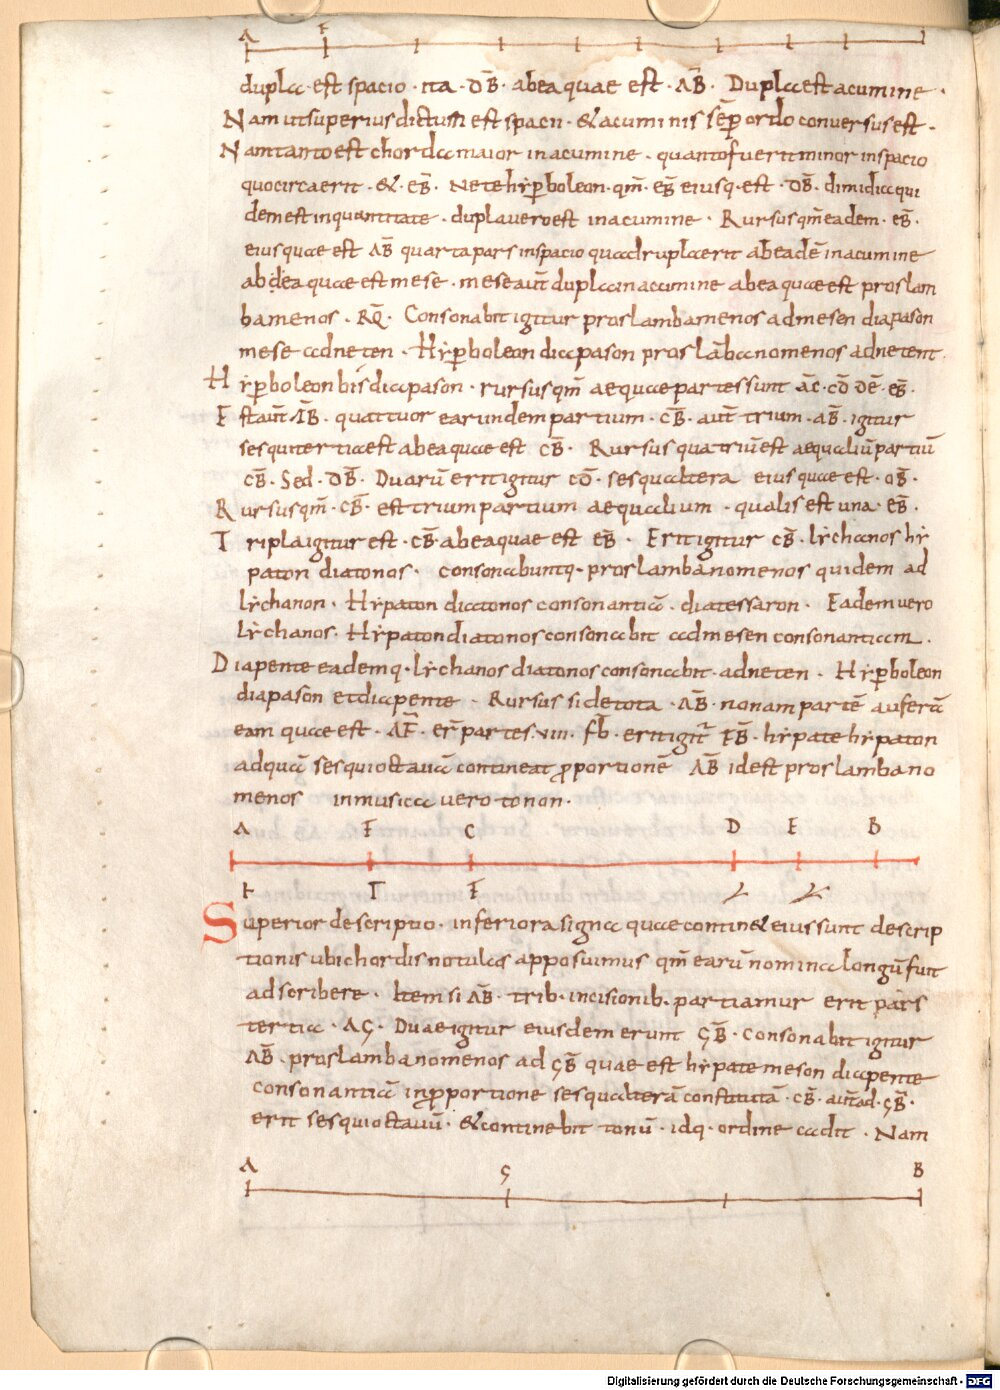 A F
dupla est spacio · ita · DB̄ · ab ea quae est · AB̄ · Dupla est acumine ·
Nam ut superius dictum est spacii · & acuminis sēp ordo conversus est ·
Nam tanto est chorda maior in acumine · quanto fuerit minor in spacio
quocirca erit · & · EB̄ · Nete hyp̄boleon · qm̄ · EB̄ eiusq· est · DB̄ · dimidia qui
dem est in quantitate · dupla vero est in acumine · Rursus qm̄ eadem · EB̄ ·
eius quae est AB̄ quarta pars in spacio quadrupla erit ab eadē in acumine
ab dea quae est mese · mese aut̄ dupla in acumine ab ea quae est proslam
bamenos · RQ̄ · Consonabit igitur proslambamenos ad mesen diapason
mese ad neten · Hyp̄boleon diapason proslābanomenos ad netent
Hyp̄boleon bis diapason · rursus qm̄ aequae partes sunt ĀC · CD̄ DĒ · EB̄ ·
Est aut̄ AB̄ · quattuor earundem partium · CB̄ · aut̄ trium · AB̄ · igitur
sesquitertia est ab ea quae est CB̄ · Rursus qua triū est aequaliū partiū
CB̄ · Sed · DB̄ · Duarū erit igitur CD̄ · sesqualtera eius quae est · DB̄ ·
Rursus qm̄ · CB̄ · est trium partium aequalium · qualis est una · EB̄ ·
Tripla igitur est · CB̄ ab ea quae est EB̄ · Erit igitur CB̄ · lychanos hy
paton diatonos · consonabuntq· proslambanomenos quidem ad
lychanon · Hypaton diatonos consonantiā · diatessaron · Eadem vero
lychanos · Hypaton diatonos consonabit ad mesen consonantiam ·
Diapente eademq· lychanos diatonos consonabit · ad neten · Hyp̄boleon
diapason et diapente · Rursus si de tota · AB̄ · nonam partē auferā
eam quae est · AF̄ · er̄ partes · VIII · fb · erit igit̄ FB̄ · hypate hypaton
ad quā sesquioctavā contineat p̄portionē AB̄ id est proslambano
menos in musica vero tonon ·
A F C D E B
Ⱶ T F
Superior descriptio · inferiora signa quae contin& eius sunt descrip
tionis ubi chordis notulas apposuimus qm̄ earū nomina longū fuit
adscribere · Item si AB̄ · trib· incisionib· partiamur erit pars
tertia · AÇ · Duae igitur eiusdem erunt ÇB̄ · Consonabit igitur
AB̄ · proslambanomenos ad ÇB̄ quae est hypate meson diapente
consonantiā in p̄portione sesqualterā constitutā · CB̄ · aut̄ ad · ÇB̄ ·
erit sesquioctavū · & continebit tonū · idq· ordine cadit · Nam
A Ç B
Digitalisierung gefördert durch die Deutsche Forschungsgemeinschaft - DFG